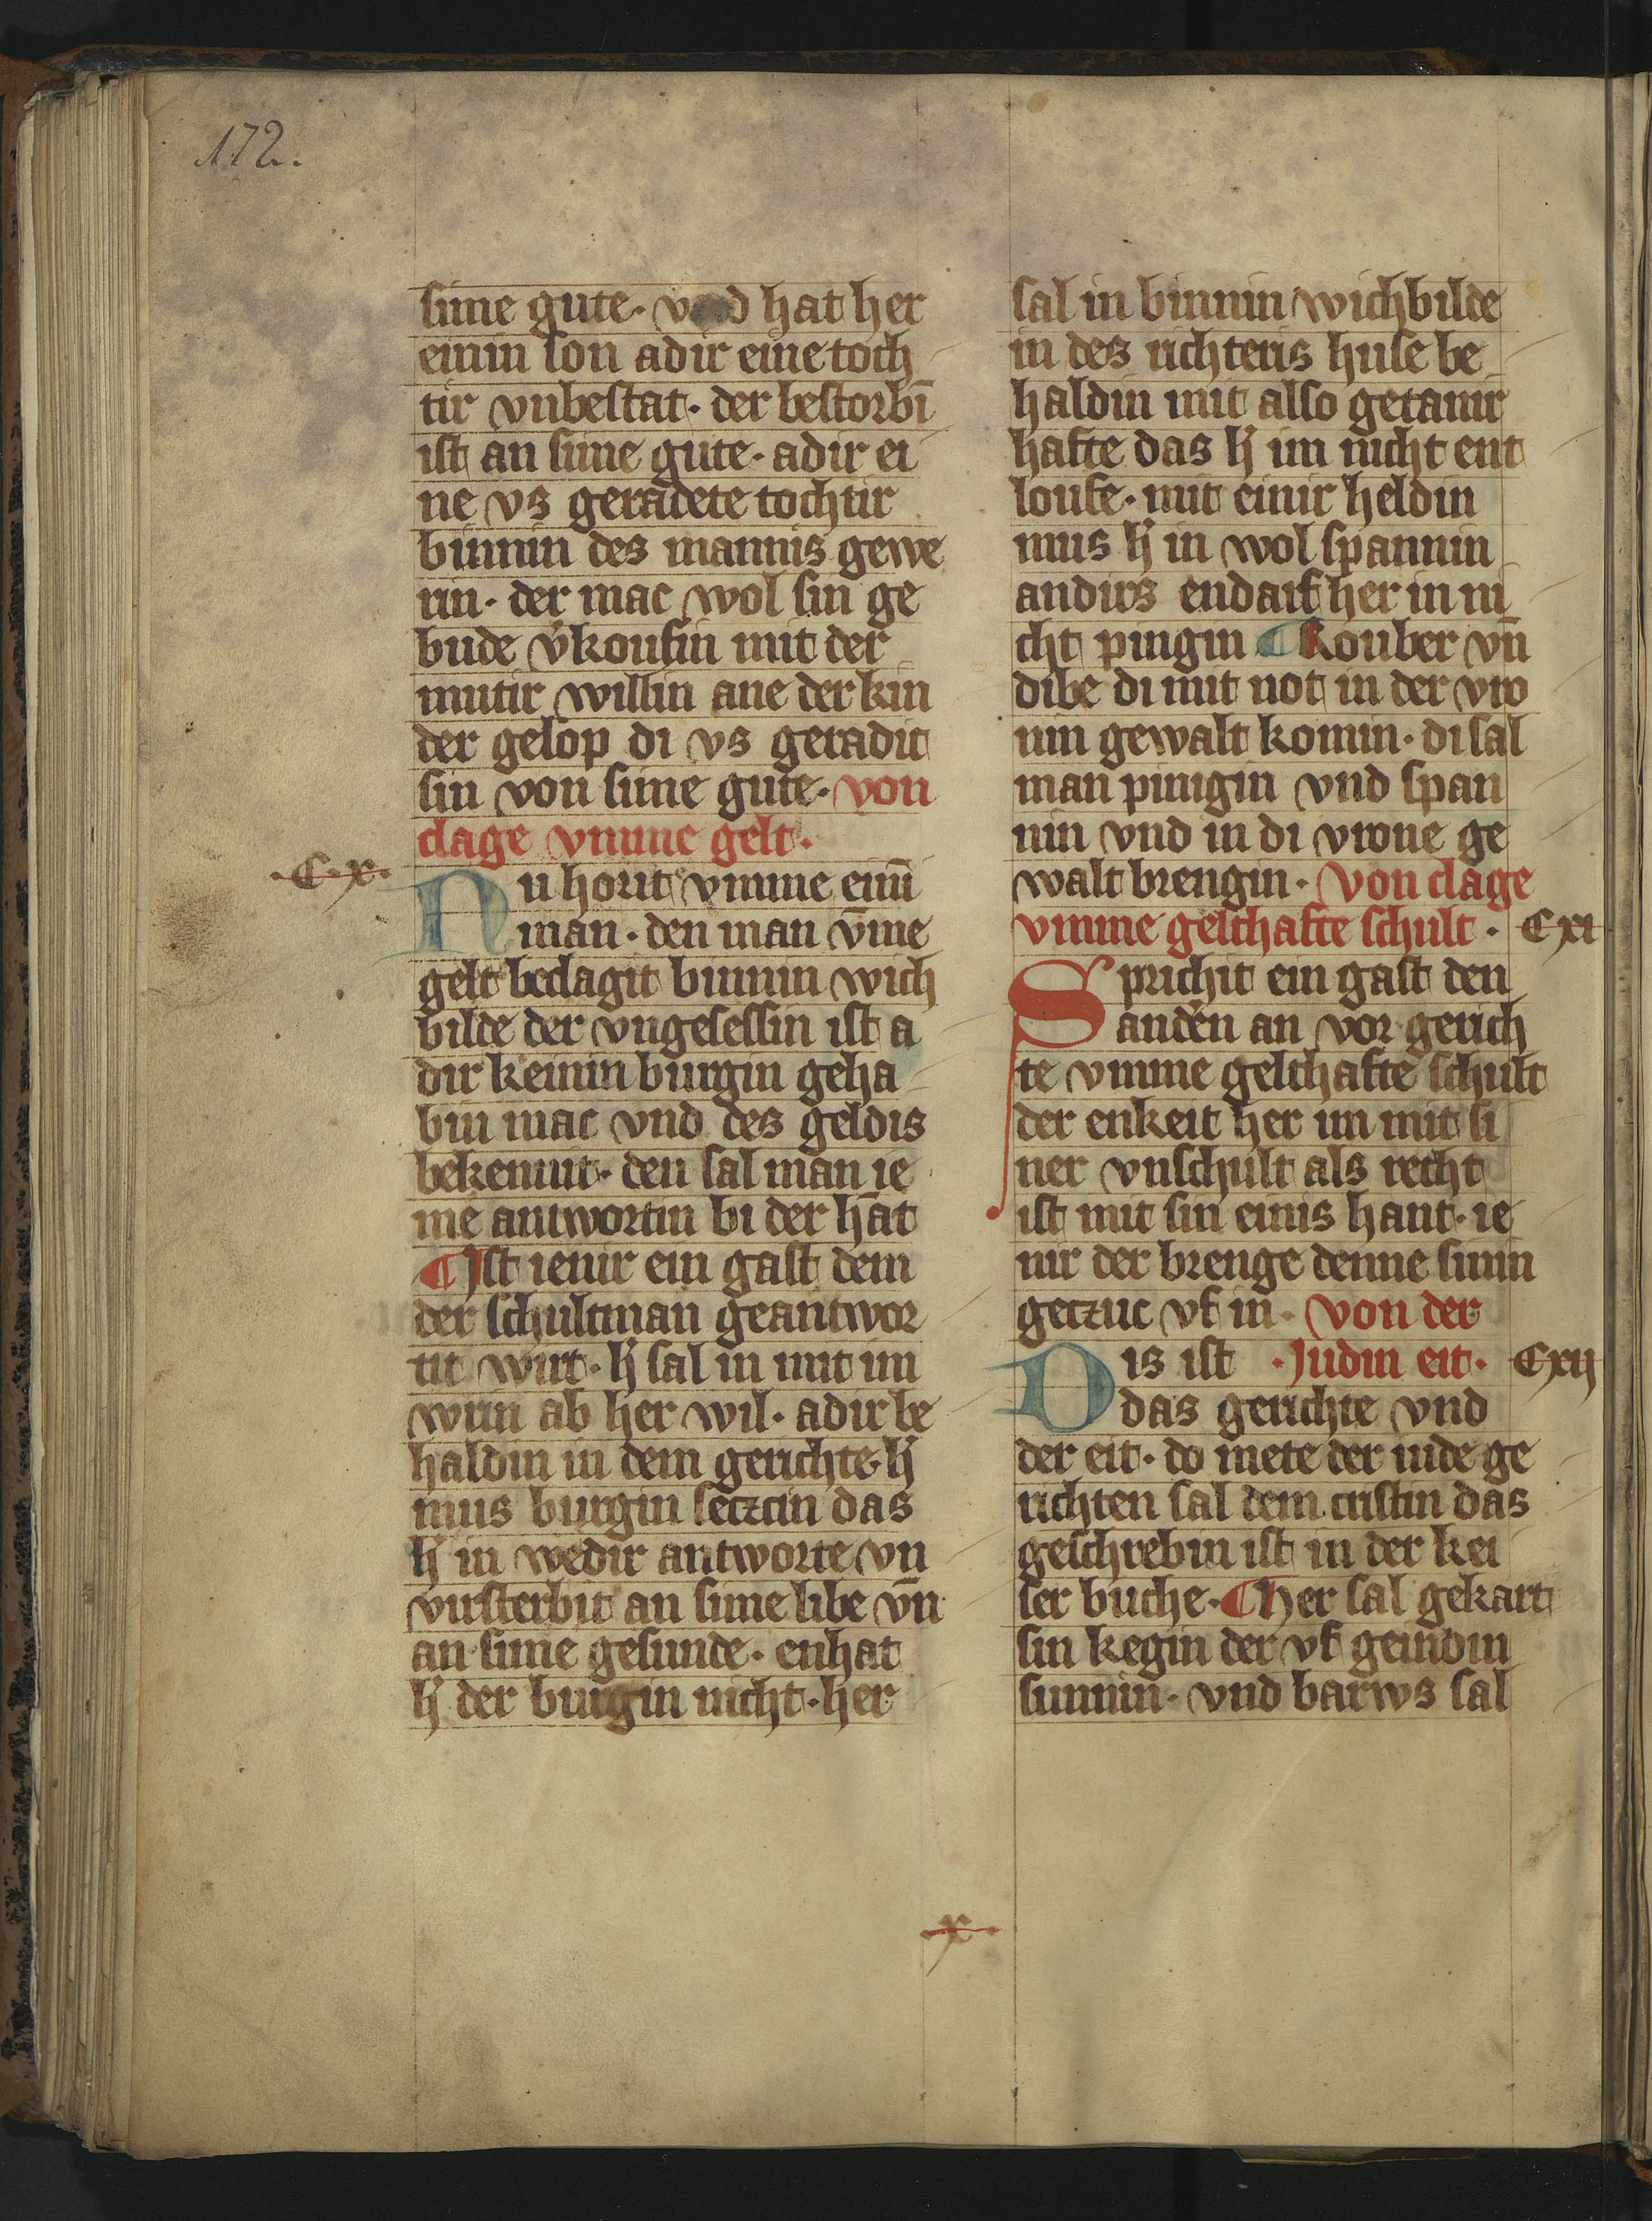 172.
sime gute. vnd hat her
einin son adir eine toch
tir vnbestat. der bestorbī
ist an sime gute. adir ei
ne vs geradete tochtir
binnin des mannis gewe
rin. der mac wol sin ge
bude v̓koufin mit der
mutir willin ane der kin
der gelop di vs geradit
sin von sime gute. von
clage vmme gelt.
.C.x.
Nu horit vmme einī
man. den man v̄me
gelt beclagit binnin wich
bilde der vngesessin ist a
dir keinin burgin geha
bin mac vnd des geldis
bekennit. den sal man ie
me antwortin bi der hāt
¶ Ist ienir ein gast dem
der schultman geantwor
tit wirt. h̓ sal in mit im
wrin ab her wil. adir be
haldin in dem gerichte. h̓
mus burgin secztin das
h̓ in wedir antworte vn̄
virsterbit an sime libe vn̄
an sime gesunde. enhat
h̓ der burgin nicht. her
sal in binnin wichbilde
in des richteris huse be
haldin mit also getanir
hafte das h̓ im nicht ent
loufe. mit einir heldin
mus h̓ in wol spannin
andirs endarf her in ni
cht pingin ¶ Rouber vn̄
dibe di mit not in der vro
nin gewalt komin. di sal
man pinigin vnd span
nin vnd in di vrone ge
walt brengin. Von clage
vmme gelthafte schult. Cxi
Sprichit ein gast den
andên an vor gerich
te vmme gelthafte schult
der enkeit her im mit si
ner vnschult als recht
ist mit sin einis hant. ie
nir der brenge denne sinin
geczuc vf in. Von der
Dis ist .Iudin eit. Cxij
das gerichte vnd
der eit. do mete der iude ge
richten sal dem cristin das
geschrebin ist in der kei
ser buche. ¶ Her sal gekart
sin kegin der vf geindin
sunnin. vnd barws sal
.x.